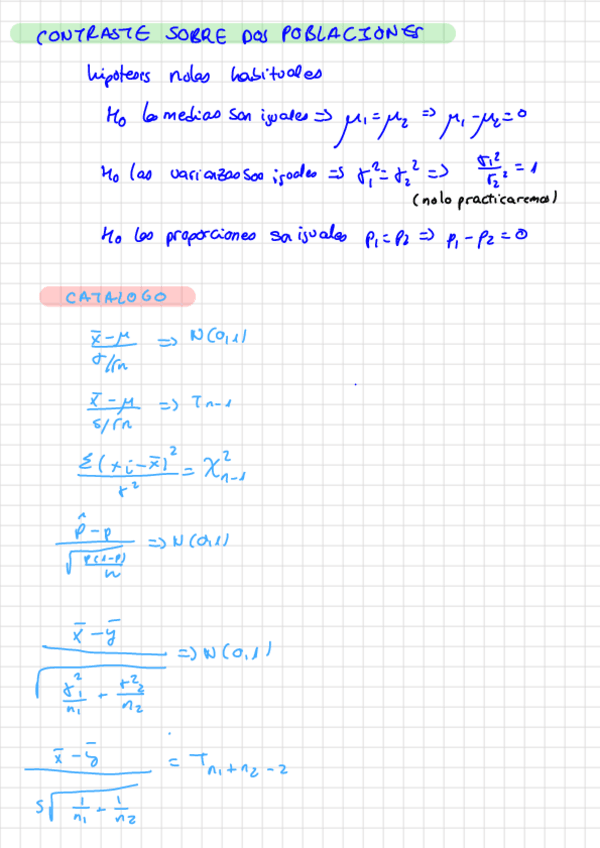 CONTRASTE SOBRE DOS POBLACIONES
hipotesis nulas habituales
H₀ las medias son iguales => μ₁ = μ₂ => μ₁ - μ₂ = 0
H₀ las varianzas son iguales => σ₁² = σ₂² => σ₁²/σ₂² = 1
(no lo practicaremos)
H₀ las proporciones son iguales p₁ = p₂ => p₁ - p₂ = 0
CATALOGO
(x̄ - μ)/(σ/√n) => N(0,1)
(x̄ - μ)/(s/√n) => Tn-1
Σ(xi - x̄)²/σ² = χ²n-1
(p̂ - p)/√(p(1-p)/n) => N(0,1)
(x̄ - ȳ)/√(σ₁²/n₁ + σ₂²/n₂) => N(0,1)
(x̄ - ȳ)/(s√(1/n₁ + 1/n₂)) = Tn₁+n₂-2